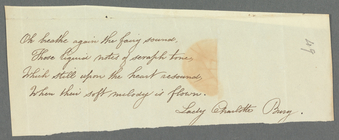 Oh breathe again the fairy sound,
Those liquid notes of seraph tone,
Which still upon the heart resound,
When their soft melody is flown.
Lady Charlotte Bury.